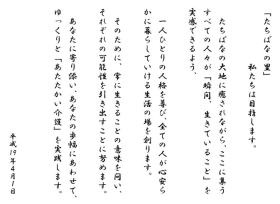 「たちばなの里」
私たちは目指します。
たちばなの大地に癒されながら、ここに集う
すべての人々が「瞬間、生きていること」を
実感できるよう、
一人ひとりの人格を尊び、全ての人が心安ら
かに暮らしていける生活の場を創ります。
そのために、常に生きることの意味を問い、
それぞれの可能性を引き出すことに努めます。
あなたに寄り添い、あなたの歩幅にあわせて、
ゆっくりと「あたたかい介護」を実践します。
平成19年4月1日